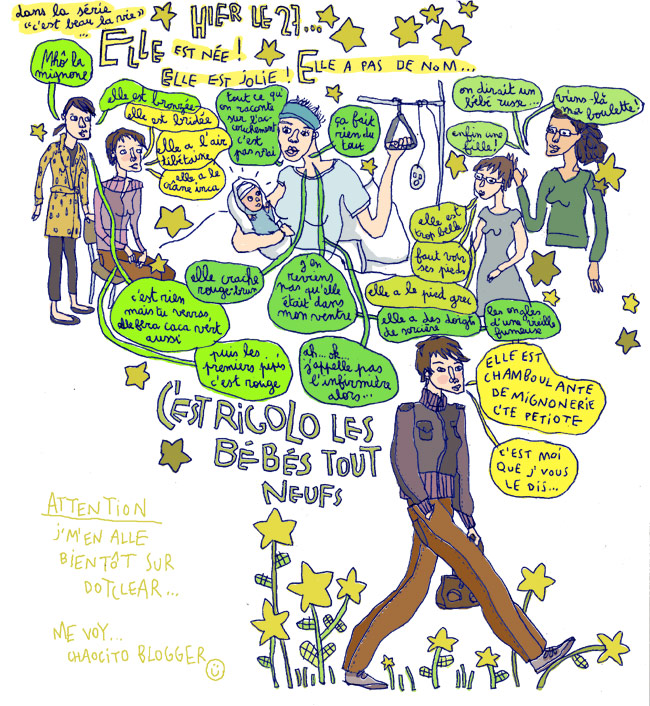 dans la série
"c'est beau la vie"
...
HIER LE 27...
ELLE EST NÉE !
ELLE EST JOLIE !
ELLE A PAS DE NOM...
Mhô la
mignone
elle est bronzée
elle est bridée
elle a l'air
tibétaine
elle a le
crâne inca
tout ce qu'
on raconte
sur l'ac-
couchement
c'est
pas vrai
ça fait
rien du
tout
on dirait un
bébé russe...
viens-là
ma boulette!
enfin une
fille!
elle est
trop belle
faut voir
ses pieds
elle a le pied grec
elle a des doigts
de sorcière
les ongles
d'une vieille
fumeuse
elle crache
rouge-brun
j'en
reviens
pas qu'elle
était dans
mon ventre
c'est rien
mais tu verras,
elle fera caca vert
aussi
puis les
premiers pipis
c'est rouge
ah... oh...
j'appelle pas
l'infirmière
alors...
C'EST RIGOLO LES
BÉBÉS TOUT
NEUFS
ELLE EST
CHAMBOULANTE
DE MIGNONERIE
C'TE PETIOTE
C'EST MOI
QUE J'VOUS
LE DIS...
ATTENTION
J'M'EN ALLE
BIENTÔT SUR
DOTCLEAR...
ME VOY...
CHAOCITO BLOGGER